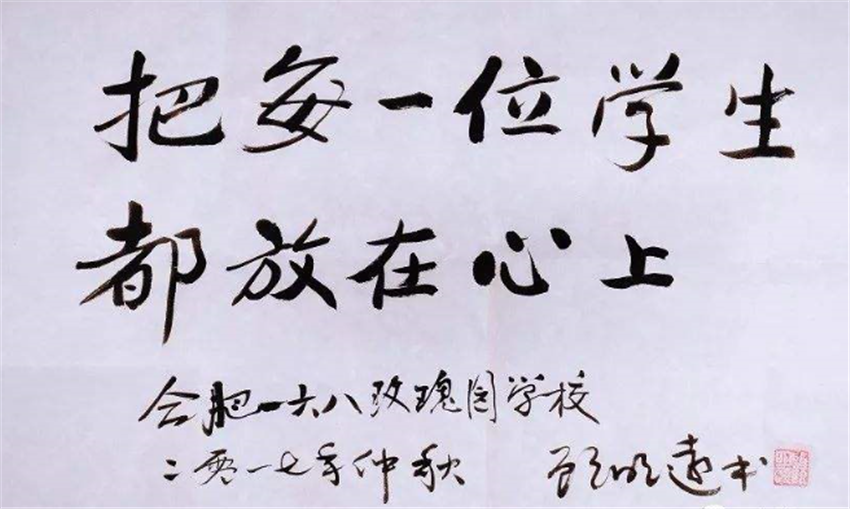 把每一位学生
都放在心上
合肥一六八玫瑰园学校
二零一七年仲秋 顾明远书